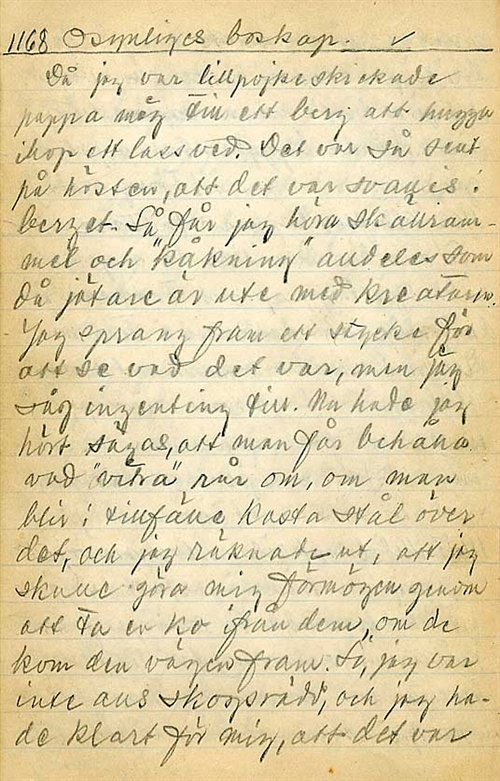 1168 Osynliges boskap. ✓
Då jag var lillpojke skickade
pappa mig till ett berg att hugga
ihop ett lass ved. Det var så sent
på hösten, att det var svanis i
berget. Så får jag höra skällram-
mel och "kåkning" alldeles som
då jätare är ute med kreaturen.
Jag sprang fram ett stycke för
att se vad det var, men jag
såg ingenting till. Nu hade jag
hört sägas, att man får behålla
vad "vitra" rår om, om man
blir i tillfälle kasta stål över
det, och jag räknade ut, att jag
skulle göra mig förmögen genom
att ta en ko från dem, om de
kom den vägen fram. Så, jag var
inte alls skogsrädd, och jag ha-
de klart för mig, att det var